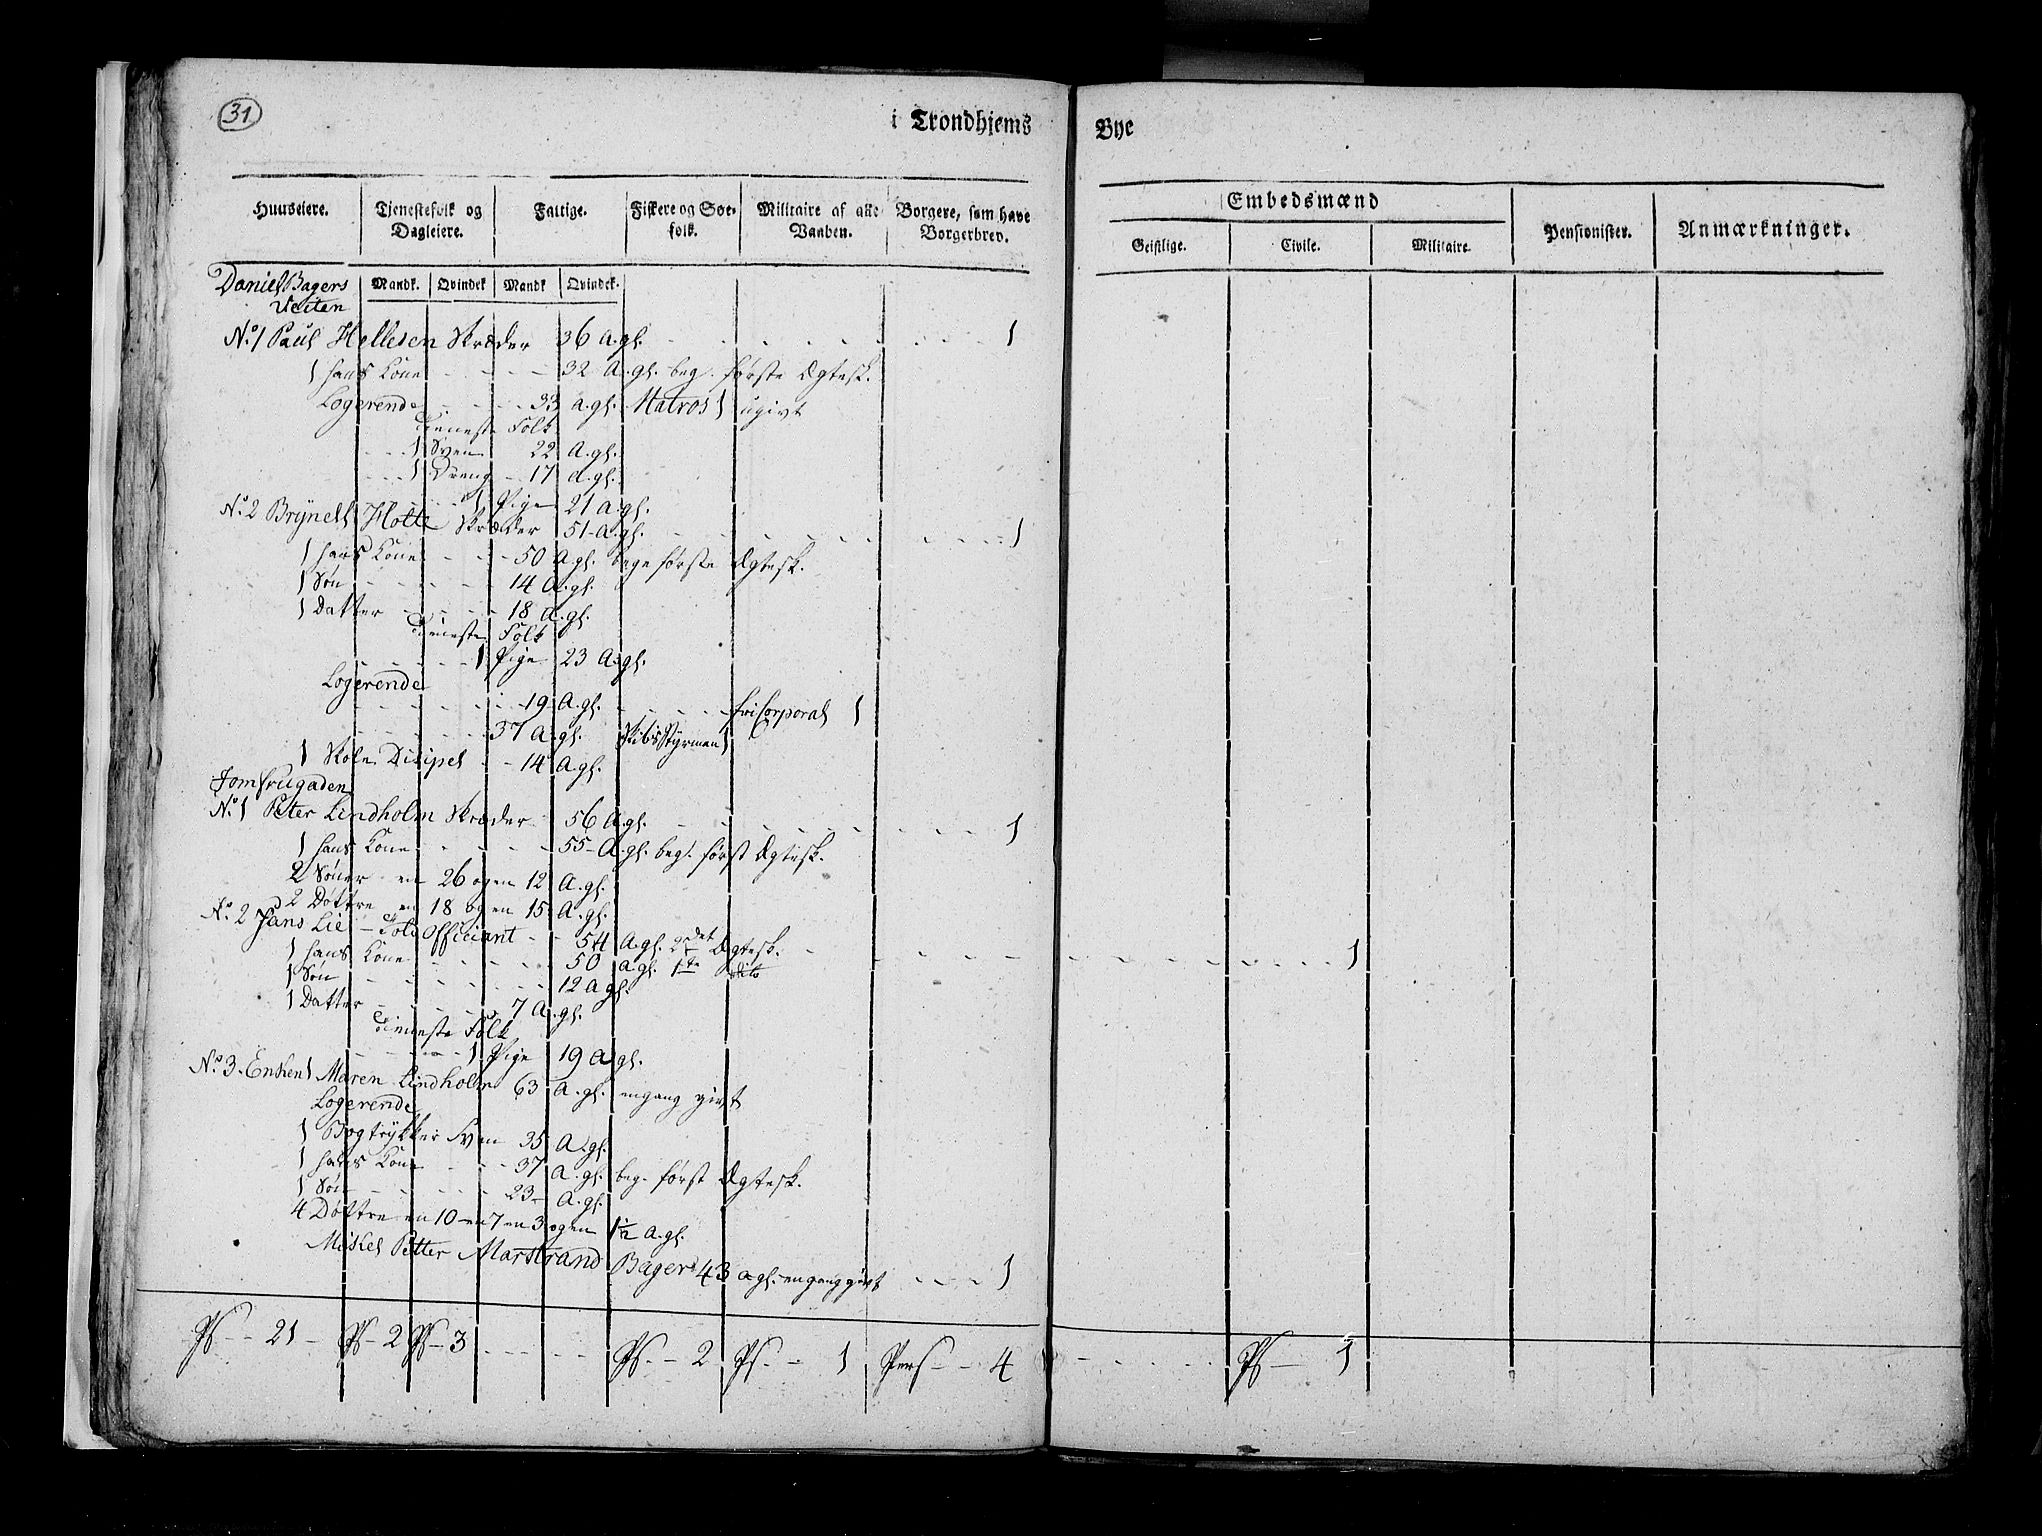 31
i Trondhjems Bye
Huuseiere. Tjenestefolk og Dagleiere. Fattige. Fiskere og Søe-folk. Militaire af alle Vaaben. Borgere, som have Borgerbrev. Embedsmænd Pensionister. Anmærkninger.
Geistlige. Civile. Militaire.
Mandk. Qvindek. Mandk. Qvindek.
Daniel Bagers
Veiten
No. 1 Paul Helleden Skræder 36 A. gl. 1
1 hans Kone 32 A. gl. beg. første Ægtesk.
Logerende 33 A. gl. Matros 1 ugivt
Tieneste Folk
1 Sven 22 A. gl.
1 Dreng 17 A. gl.
1 Pige 21 A. gl.
No. 2 Brynel Holte Skræder 51 A. gl. 1
1 hans Kone 50 A. gl. bege første Ægtesk.
1 Søn 14 A. gl.
1 Datter 18 A. gl.
Tieneste Folk
1 Pige 23 A. gl.
Logerende
19 A. gl. fri Corporal 1
37 A. gl. Skibs Styrman 1
1 Skole Disipel 14 A. gl.
Jomfrugaden
No. 1 Peter Lindholm Skræder 56 A. gl. 1
1 hans Kone 55 A. gl. beg. først Ægtesk.
2 Sønner en 26 og en 12 A. gl.
2 Døttre en 18 og en 15 A. gl.
No. 2 Jans Lie Told Officiant 54 A. gl. 2det Ægtesk. 1
1 hans Kone 50 A. gl. 1te dito
1 Søn 12 A. gl.
1 Datter 7 A. gl.
Tieneste Folk
1 Pige 19 A. gl.
No. 3. Enken 1 Maren Lindholm 63 A. gl. engang givt
Logerende
1 Bogtrykker Sven 35 A. gl.
1 hans Kone 37 A. gl. beg. først Ægtesk.
1 Søn 23 A. gl.
4 Døttre en 10 en 7 en 3 og en 1 1/2 A. gl.
Mikel Petter Marstrand Bager 43 A. gl. engang givt 1
Ps 21 Ps 2 Ps 3 Ps. 2 Ps. 1 Pers 4 Ps 1